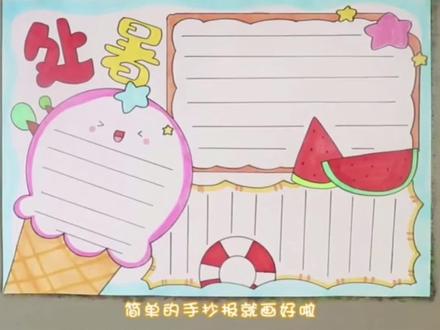 处暑
简单的手抄报就画好啦